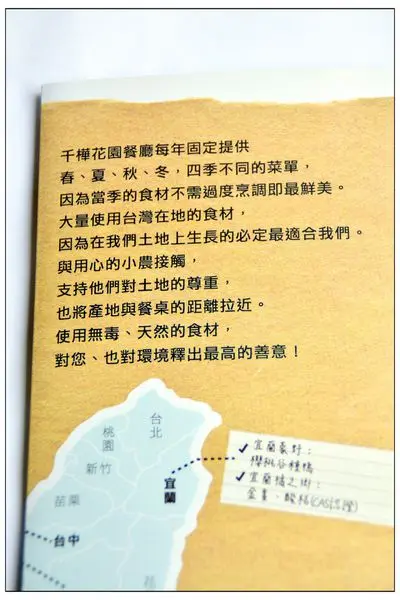 千樺花園餐廳每年固定提供
春、夏、秋、冬，四季不同的菜單，
因為當季的食材不需過度烹調即最鮮美。
大量使用台灣在地的食材，
因為在我們土地上生長的必定最適合我們。
與用心的小農接觸，
支持他們對土地的尊重，
也將產地與餐桌的距離拉近。
使用無毒、天然的食材，
對您、也對環境釋出最高的善意！
台北
桃園
新竹
宜蘭
苗栗
台中
花
宜蘭豪野：
櫻桃谷種鴨
宜蘭橘之鄉：
金棗、酸桔(CAS認證)